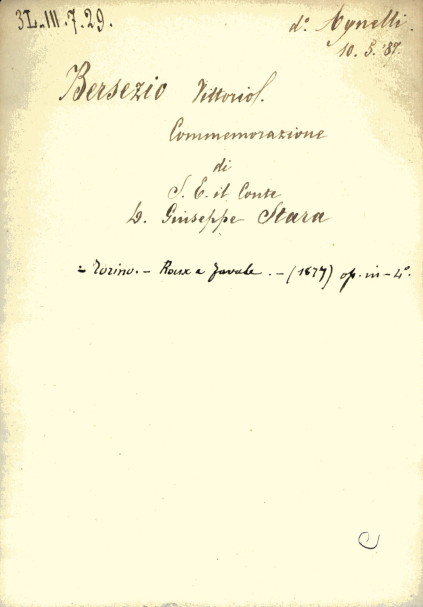 3L.III.7.29.
d.º Agnelli.
10. 5. '87.
Bersezio Vittorio.
Commemorazione
di
S. E. il Conte
D. Giuseppe Stara
= Torino. - Roux e Favale. - (1877) op. in - 4º.
C